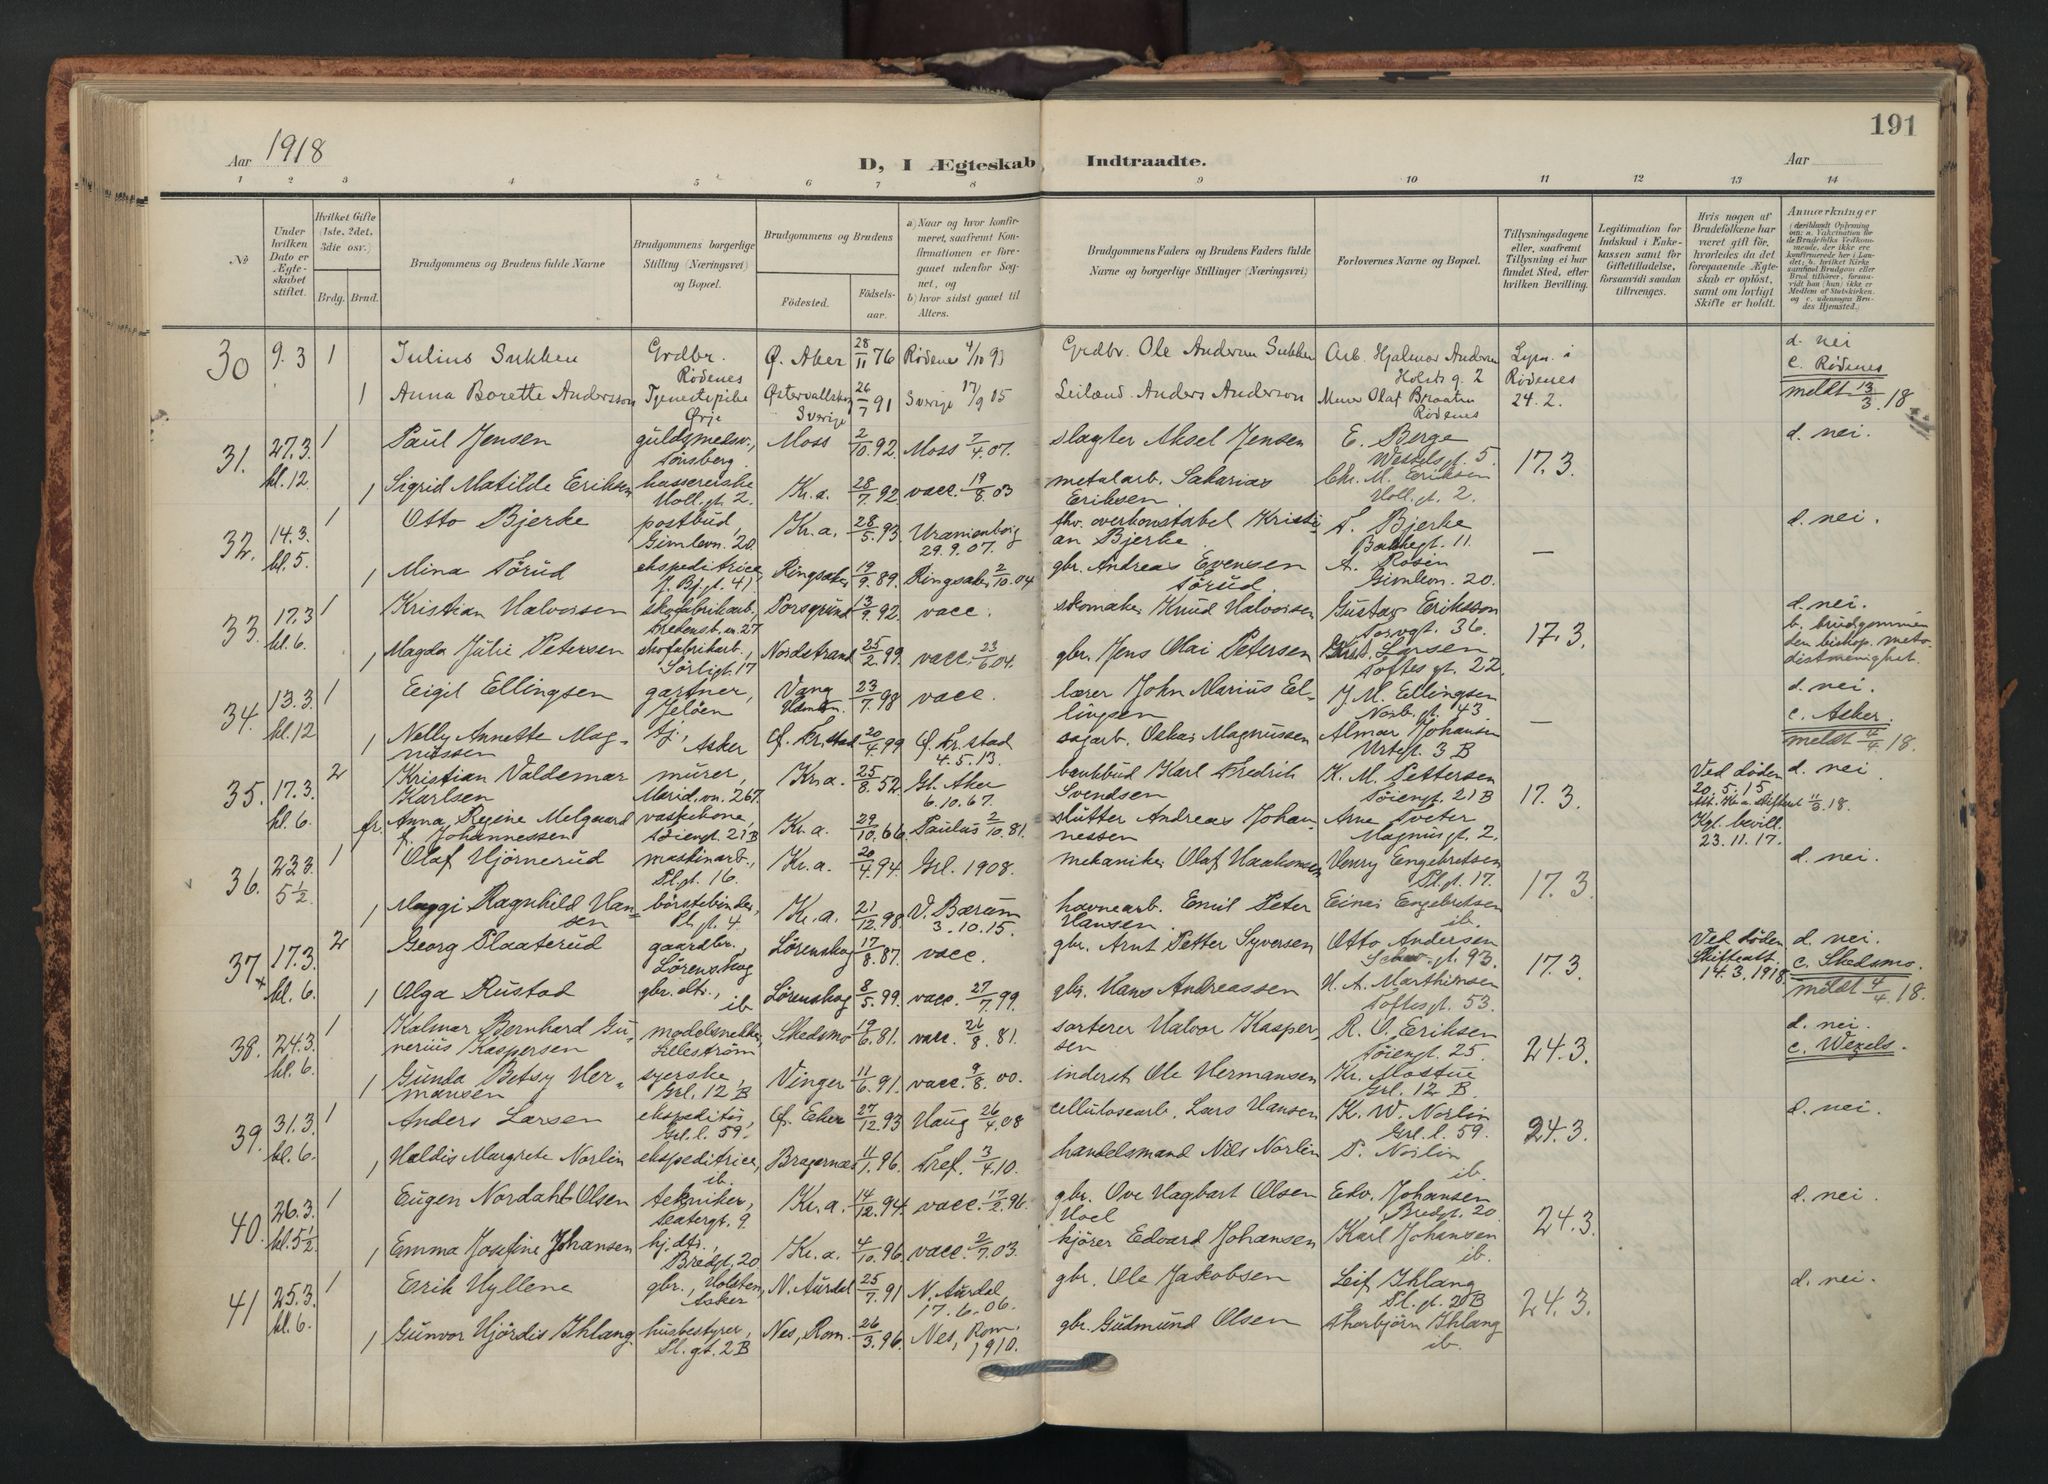 191
Aar 1918
D, I Ægteskab Indtraadte.
Aar
1 2 3 4 5 6 7 8 9 10 11 12 13 14
No
Under hvilken Dato er Ægteskabet stiftet.
Hvilket Gifte (1ste, 2det, 3die osv.)
Brdg. Brud.
Brudgommens og Brudens fulde Navne
Brudgommens borgerlige Stilling (Næringsvei) og Bopæl.
Brudgommens og Brudens
Fødested. Fødselsaar.
a) Naar og hvor konfirmeret, saafremt Konfirmationen er foregaaet udenfor Sognet, og
b) hvor sidst gaaet til Alters.
Brudgommens Faders og Brudens Faders fulde Navne og borgerlige Stillinger (Næringsvei)
Forlovernes Navne og Bopæl.
Tillysningsdagene eller, saafremt Tillysning ei har fundet Sted, efter hvilken Bevilling.
Legitimation for Indskud i Enkekassen samt for Giftetilladelse, forsaavidt saadan tiltrænges.
Hvis nogen af Brudefolkene har været gift før, hvorledes da det foregaaende Ægteskab er opløst, samt om lovligt Skifte er holdt.
Anmærkninger
30 9.3 1 Julius Sukken Grdbr. Rødenes Ø. Aker 28/11 76 Rødenes 4/10 91 Grdbr. Ole Andersen Sukken Arb. Hjalmar Andersen Holsts g. 2 Lysn. i Rødenes 24.2. d. nei c. Rødenes
1 Anna Borette Andersson Tjenestepike Ørje Østervallskog Sverige 26/7 91 Sverige 17/9 05 Leilænd. Anders Anderson Murer Olaf Braaten Rødenes meldt 13/3 18
31. 27.3 kl. 12 1 Paul Jensen guldsmedsv., Tönsberg. Moss 2/10 92. Moss 7/4 07. slagter Aksel Jensen E. Berge Wesselsgt. 5. 17.3. d. nei.
1 Sigrid Matilde Eriksen kassererske Holl. gt. 2. Kr.a. 28/7 92 vacc. 19/8 03 metalarb. Sakarias Eriksen Chr. M. Eriksen Holl. gt. 2.
32. 14.3. kl. 5. 1 Otto Bjerke postbud, Gimlevn. 20. Kr.a. 28/5 93 Uranienborg 29.9.07. fhv. overkonstabel Kristian Bjerke Bjerke Bakkegt. 11. — d. nei.
1 Mina Törud ekspeditrice, Ringsaker 19/9 89. Ringsaker 2/10 04 gbr. Andreas Evensen Törud A. Rosén Gimlevn. 20.
33. 17.3 kl. 6. 1 Kristian Halvorsen skofabrikarb., Porsgrund 13/9 92 vacc. skomaker Knud Halvorsen Gustav Eriksson Torvgt. 36. 17.3. d. nei. b. brudgommen den biskop. metodistmenighet.
1 Magda Julie Petersen skofabrikarb., Sörligt. 17 Nordstrand 25/2 99 vacc. 23/6 04. gbr. Jens Olai Petersen Larsen Toftes gt. 22.
34. 13.3. kl. 12 1 Eigil Ellingsen gartner, Jelöen Vang 23/7 98 vacc. lærer John Marius Ellingsen J. M. Ellingsen Norb. gt. 43 — d. nei. c. Asker.
1 Nelly Annette Magnussen tj. Asker G. Fr.stad 20/4 99 G. Fr.stad 4.5.13. sagarb. Oskar Magnussen Almar Johansen Urtegt. 3 B meldt 4/4 18.
35. 17.3. kl. 6. 2 Kristian Valdemar Karlsen murer, Marid.vn. 267. Kr.a. 25/8 52 Gl. Aker 6.10.67. bankbud Karl Fredrik Svendsen K. M. Pettersen Töiengt. 21 B 17.3. Ved döden 20.5.15 Kgl. bevill. 23.11.17. d. nei
fr. Anna Regine Melgaard f. Johannessen vaskekone, Töiengt. 21 B Kr.a. 29/10 66 Paulus 2/10 81. slutter Andreas Johannessen Arne Tveter Magnusgt. 2.
36. 23.3. 5 1/2 1 Olaf Hjörnerud maskinarb., Pl.gt. 16. Kr.a. 20/4 94 Grl. 1908. mekaniker Olaf Haakonsen Henry Engebretsen Pl.gt. 17. 17.3. d. nei.
1 Maggi Ragnhild Hansen börstebinder, Pl. gt. 4 Kr.a. 21/12 98 V. Bærum 3.10.15. havnearb. Emil Peter Hansen. Einar Engebretsen ib.
37 17.3. kl. 6. 2 Georg Plaaterud gaardbr., Lörenskog Lörenskog 17/8 87. vacc. gbr. Arnt Petter Syversen Otto Andersen gt. 93. 17.3. Ved döden Skifteatt. 14.3.1918. d. nei. c. Skedsmo.
1 Olga Rustad gbr.dtr., ib Lörenskog 8/5 99. vacc. 27/7 99. gbr. Hans Andreassen H. A. Marthinsen Toftes gt. 53. meldt 4/4 18.
38. 24.3. kl. 6. 1 Kalmar Bernhard Gunerius Kaspersen modelsnekker, Lilleström Skedsmo 19/6 81. vacc. 26/8 81. sorterer Halvor Kaspersen R. O. Eriksen Töiengt. 25. 24.3. d. nei. c. Wexels.
1 Gunda Betsy Hermansen syerske, Grl. 12 B Vinger 11/6 91. vacc. 9/8 00. inderst Ole Hermansen Kr. Mostue Grl. 12 B
39. 31.3. kl. 6. 1 Anders Larsen ekspeditör, Grl. l. 59. Ø. Eker 27/12 93 Haug 26/4 08 cellulosearb. Lars Hansen K. W. Norlin Grl. l. 59. 24.3. d. nei.
1 Haldis Margrete Norlin ekspeditrice, ib. Bragernæs 11/1 96. Tref. 3/4 10. handelsmand Nils Norlin P. Norlin ib.
40. 26.3. kl. 5 1/2 1 Eugen Nordahl-Olsen tekniker, Teatergt. 9. Kr.a. 14/12 94. vacc. 17/2 96. gbr. Ove Hagbart Olsen Hoel Edv. Johansen Bredgt. 20. 24.3. d. nei.
1 Emma Josefine Johansen hj.dtr., Bredgt. 20 Kr.a. 4/10 96 vacc. 2/7 03. kjörer Edvard Johansen Karl Johansen ib.
41 25.3. kl. 6. 1 Erik Hyllene gbr., Holsten, Asker N. Aurdal 25/7 91 N. Aurdal 17.6.06. gbr. Ole Jakobsen Leif Ihlang Pl. gt. 2 B 24.3. d. nei.
1 Gunvor Hjördis Ihlang husbestyrer, Pl. gt. 2 B Nes, Rom. 26/3 96. Nes, Rom. 1910. gbr. Gudmund Olsen Thorbjörn Ihlang ib.